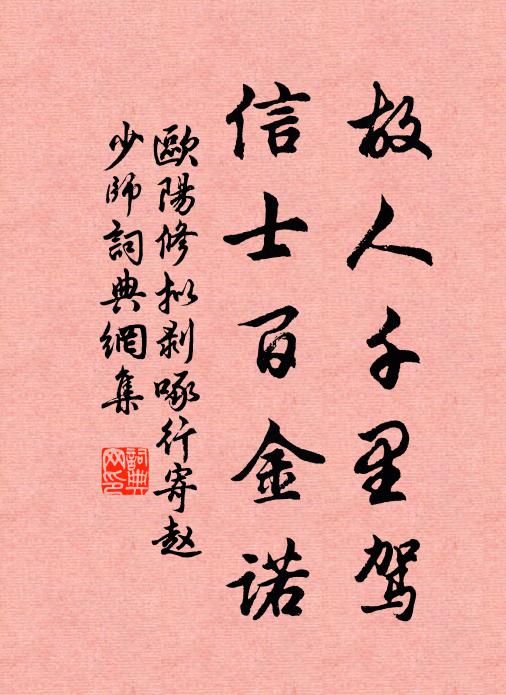 故人千里驾
信士百金诺
歐陽修拟剥啄行寄赵
少师詞典網集
詞典
网印